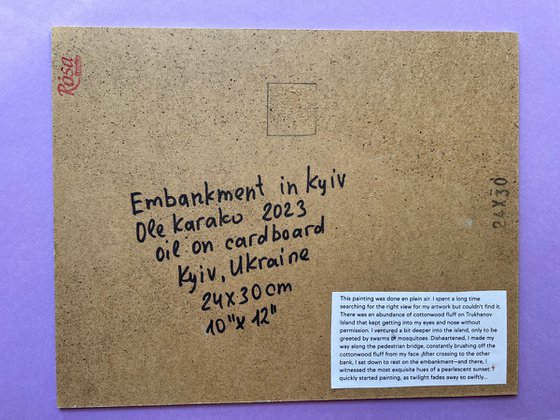 Rosa
24X30
Embankment in Kyiv
Ole Karako 2023
oil on cardboard
Kyiv, Ukraine
24x30 cm
10"x 12"
This painting was done en plein air. I spent a long time
searching for the right view for my artwork but couldn't find it.
There was an abundance of cottonwood fluff on Trukhanov
Island that kept getting into my eyes and nose without
permission. I ventured a bit deeper into the island, only to be
greeted by swarms of mosquitoes. Disheartened, I made my
way along the pedestrian bridge, constantly brushing off the
cottonwood fluff from my face. After crossing to the other
bank, I sat down to rest on the embankment—and there, I
witnessed the most exquisite hues of a pearlescent sunset. I
quickly started painting, as twilight fades away so swiftly...